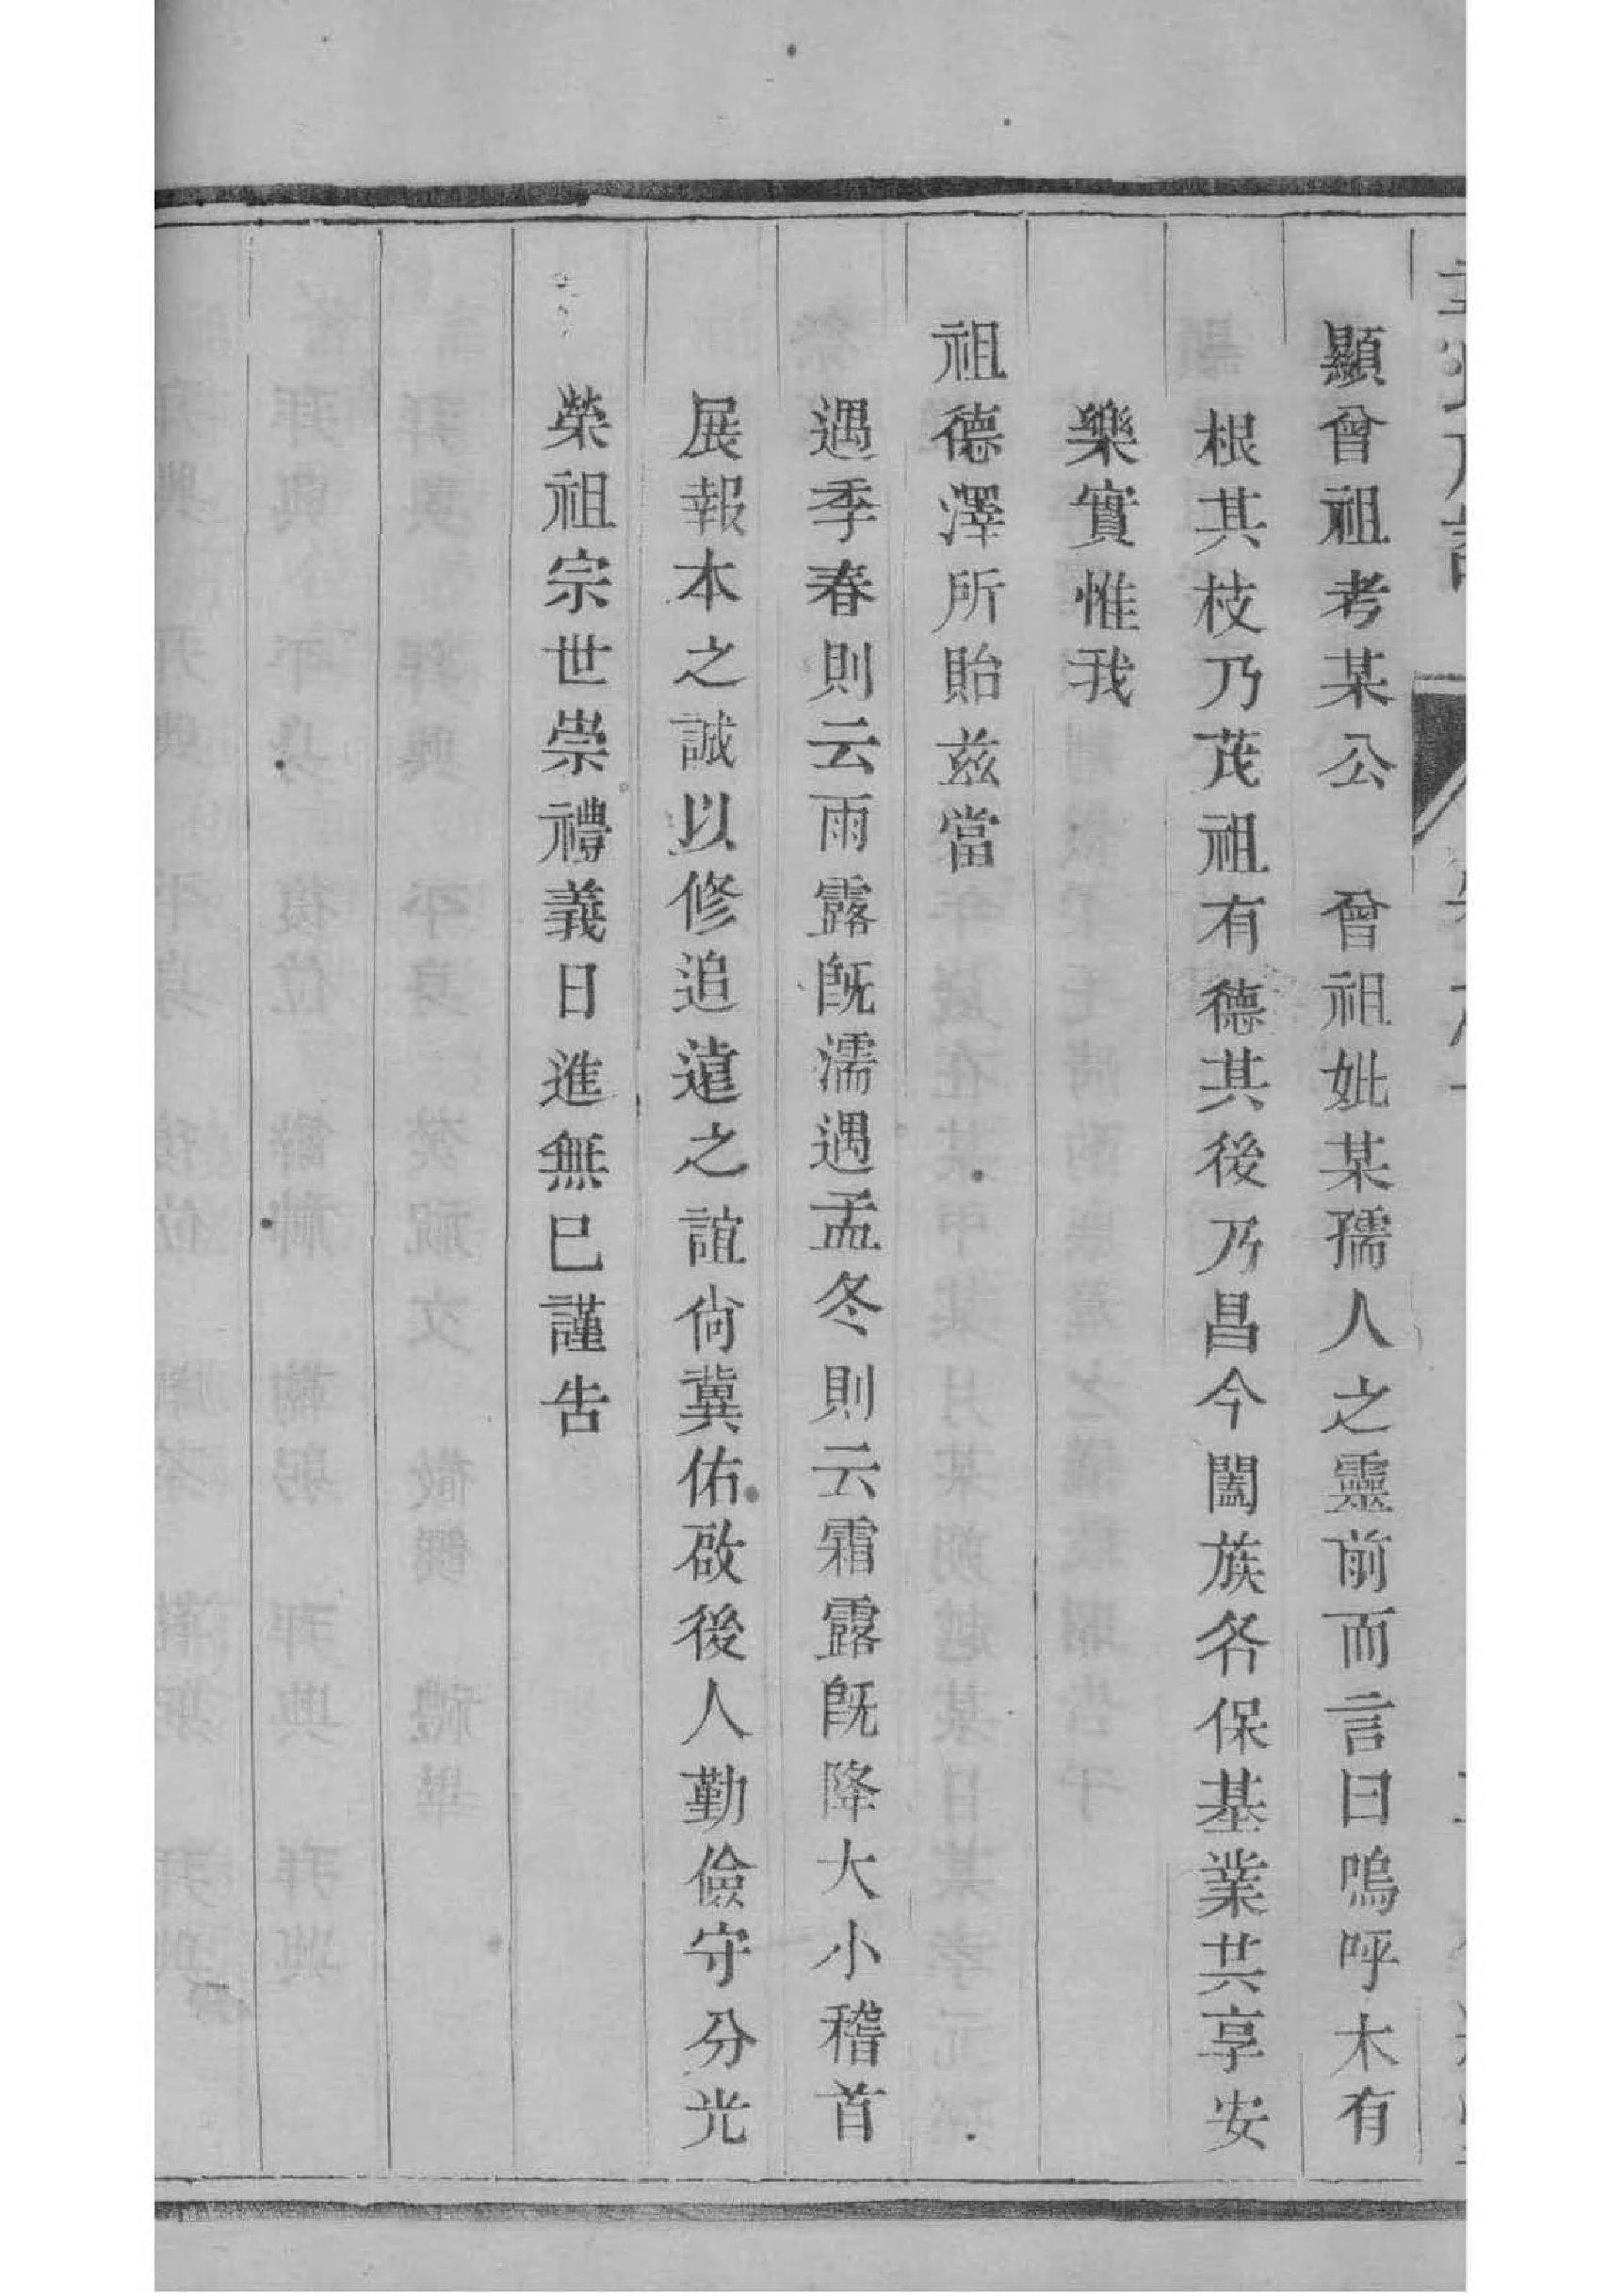 顯曾祖考某公　曾祖妣某孺人之靈前而言曰嗚呼木有
根其枝乃茂祖有德其後乃昌今闔族各保基業共享安
樂實惟我
祖德澤所貽茲當
遇季春則云雨露旣濡遇孟冬則云霜露旣降大小稽首
展報本之誠以修追遠之誼尙冀佑啟後人勤儉守分光
榮祖宗世崇禮義日進無已謹告